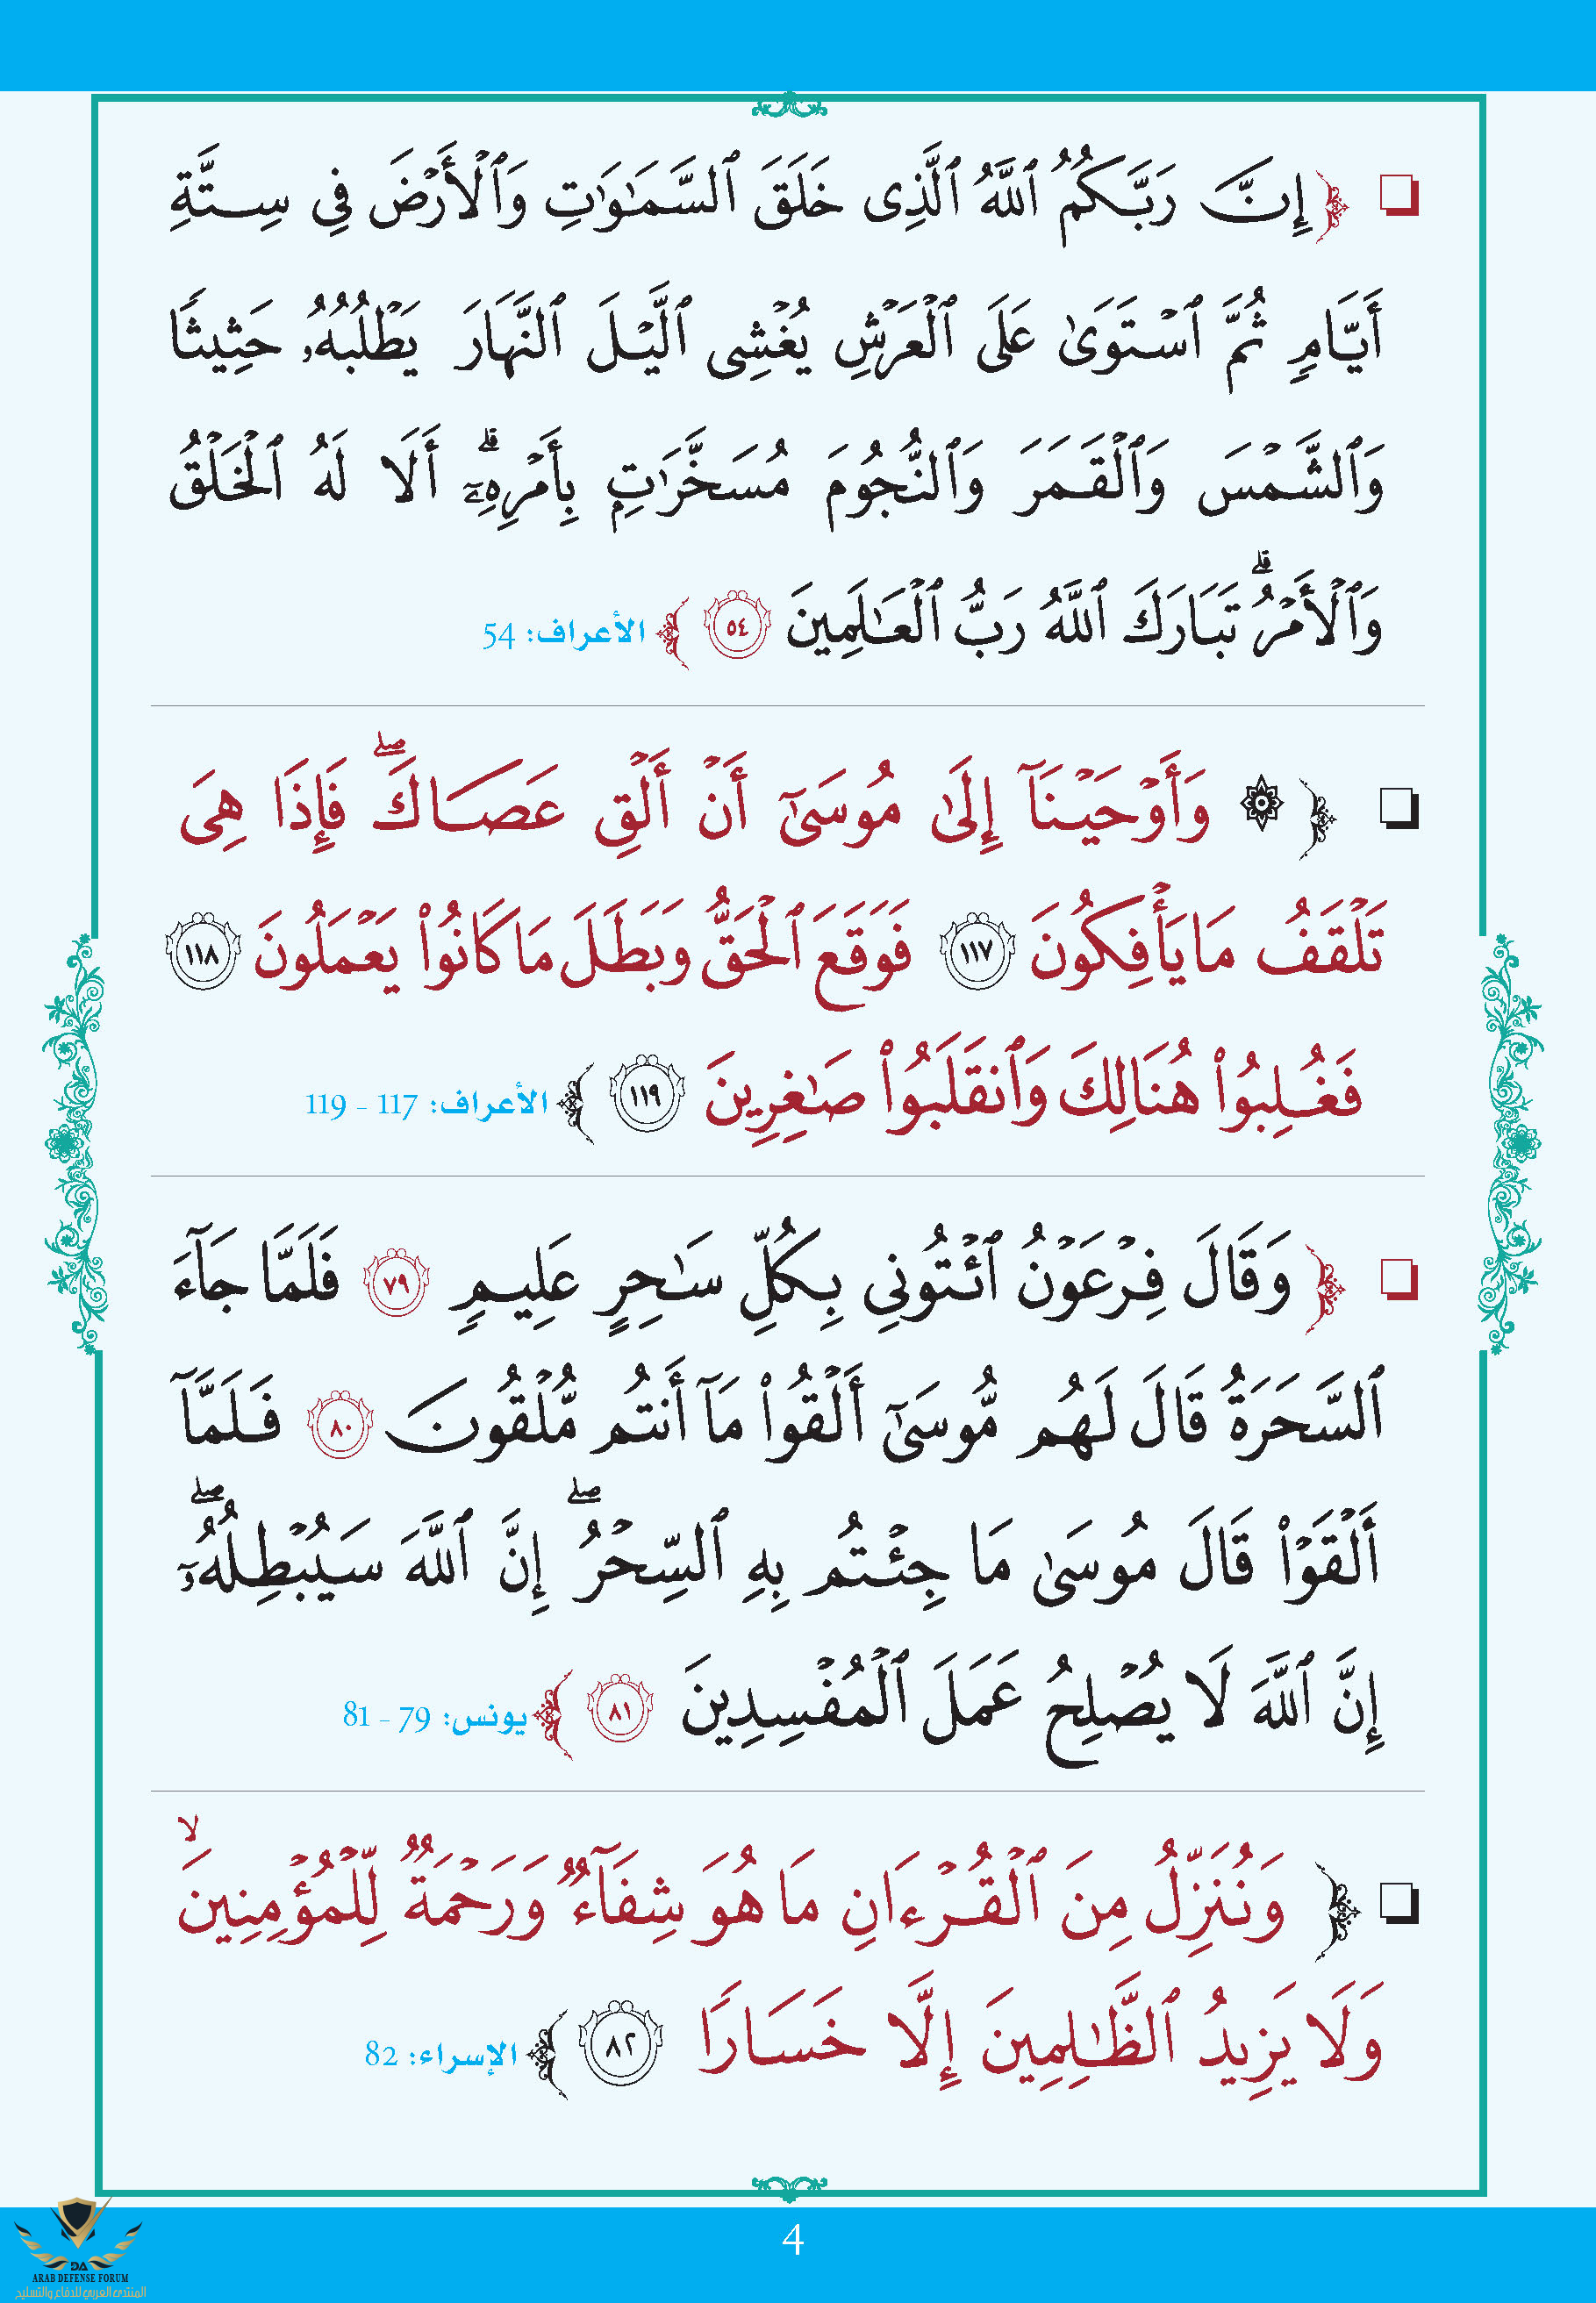 ﴿ إِنَّ رَبَّكُمُ ٱللَّهُ ٱلَّذِى خَلَقَ ٱلسَّمَـٰوَٰتِ وَٱلْأَرْضَ فِى سِتَّةِ
أَيَّامٍ ثُمَّ ٱسْتَوَىٰ عَلَى ٱلْعَرْشِ يُغْشِى ٱلَّيْلَ ٱلنَّهَارَ يَطْلُبُهُۥ حَثِيثًا
وَٱلشَّمْسَ وَٱلْقَمَرَ وَٱلنُّجُومَ مُسَخَّرَٰتٍۭ بِأَمْرِهِۦٓ ۗ أَلَا لَهُ ٱلْخَلْقُ
وَٱلْأَمْرُ ۗ تَبَارَكَ ٱللَّهُ رَبُّ ٱلْعَـٰلَمِينَ ٥٤ ﴾ الأعراف: 54
﴿ ۞ وَأَوْحَيْنَآ إِلَىٰ مُوسَىٰٓ أَنْ أَلْقِ عَصَاكَ ۖ فَإِذَا هِىَ
تَلْقَفُ مَا يَأْفِكُونَ ١١٧ فَوَقَعَ ٱلْحَقُّ وبَطَلَ مَا كَانُوا۟ يَعْمَلُونَ ١١٨
فَغُلِبُوا۟ هُنَالِكَ وَٱنقَلَبُوا۟ صَـٰغِرِينَ ١١٩ ﴾ الأعراف: 117 - 119
﴿ وَقَالَ فِرْعَوْنُ ٱئْتُونِى بِكُلِّ سَـٰحِرٍ عَلِيمٍ ٧٩ فَلَمَّا جَآءَ
ٱلسَّحَرَةُ قَالَ لَهُم مُّوسَىٰٓ أَلْقُوا۟ مَآ أَنتُم مُّلْقُونَ ٨٠ فَلَمَّآ
أَلْقَوْا۟ قَالَ مُوسَىٰ مَا جِئْتُم بِهِ ٱلسِّحْرُ ۖ إِنَّ ٱللَّهَ سَيُبْطِلُهُۥٓ ۖ
إِنَّ ٱللَّهَ لَا يُصْلِحُ عَمَلَ ٱلْمُفْسِدِينَ ٨١ ﴾ يونس: 79 - 81
﴿ وَنُنَزِّلُ مِنَ ٱلْقُرْءَانِ مَا هُوَ شِفَآءٌ وَرَحْمَةٌ لِّلْمُؤْمِنِينَ ۙ
وَلَا يَزِيدُ ٱلظَّـٰلِمِينَ إِلَّا خَسَارًا ٨٢ ﴾ الإسراء: 82
4
DA
ARAB DEFENSE FORUM
المنتدى العربي للدفاع والتسليح